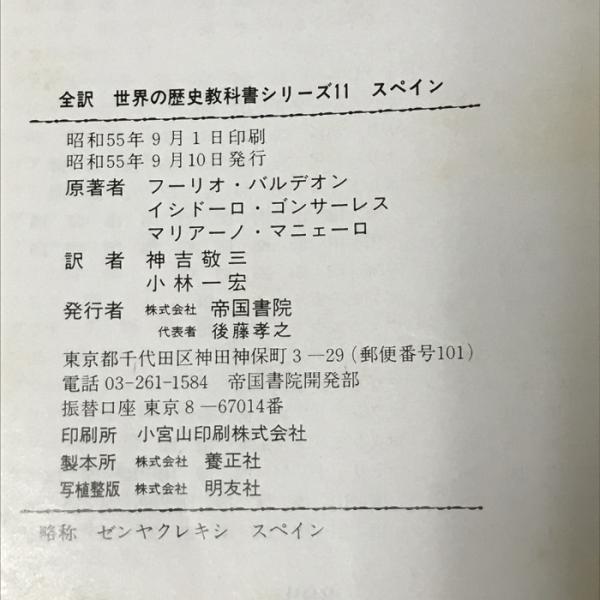 全訳 世界の歴史教科書シリーズ11 スペイン
昭和55年9月1日印刷
昭和55年9月10日発行
原著者 フーリオ・バルデオン
イシドーロ・ゴンサーレス
マリアーノ・マニェーロ
訳者 神吉敬三
小林一宏
発行者 株式会社 帝国書院
代表者 後藤孝之
東京都千代田区神田神保町3―29(郵便番号101)
電話 03-261-1584 帝国書院開発部
振替口座 東京8―67014番
印刷所 小宮山印刷株式会社
製本所 株式会社 養正社
写植整版 株式会社 明友社
略称 ゼンヤクレキシ スペイン